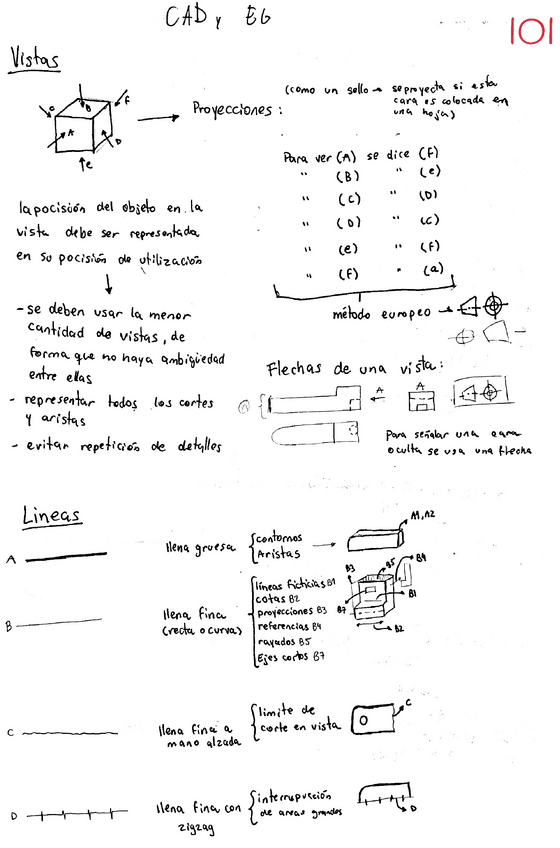 CAD y EG
101
Vistas
C
B
F
A
D
e
Proyecciones:
(como un sello → se proyecta si esta
cara es colocada en
una hoja)
Para ver (A) se dice (F)
" (B) " (e)
" (C) " (D)
" (D) " (C)
" (e) " (F)
" (F) " (a)
método europeo →
la pocisión del objeto en la
vista debe ser representada
en su pocisión de utilización
- se deben usar la menor
cantidad de vistas, de
forma que no haya ambigüedad
entre ellas
- representar todos los cortes
y aristas
- evitar repetición de detalles
Flechas de una vista:
A
A
Para señalar una cara
oculta se usa una flecha
Lineas
A
llena gruesa
contornos
Aristas
A1, A2
B
llena fina
(recta o curva)
líneas ficticias B1
cotas B2
proyecciones B3
referencias B4
rayados B5
Ejes cortos B7
B3
B5
B4
B7
B1
B2
C
llena fina a
mano alzada
limite de
corte en vista
C
D
llena fina con
zigzag
interrupucción
de areas grandes
D